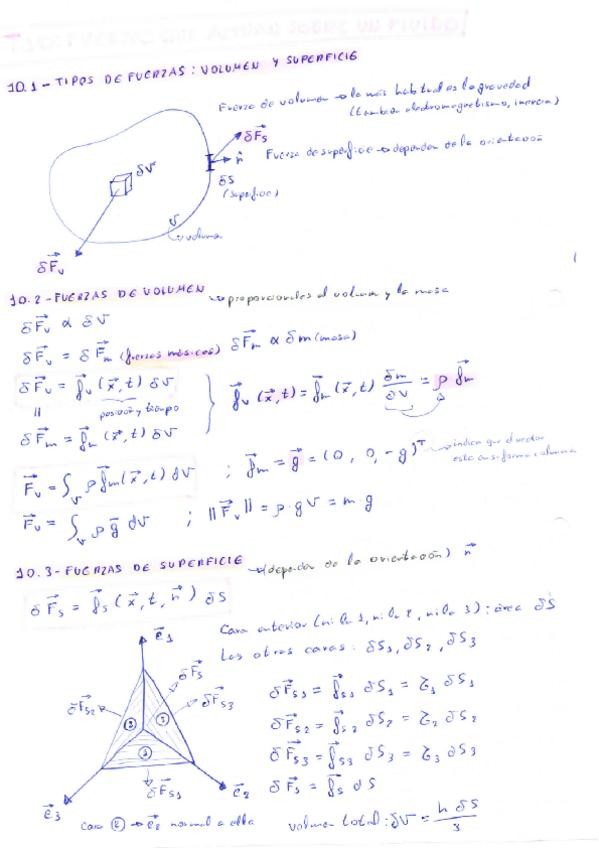 T.10: FUERZAS QUE ACTUAN SOBRE UN FLUIDO
10.1 - TIPOS DE FUERZAS: VOLUMEN Y SUPERFICIE
Fuerza de volumen → la más habitual es la gravedad
(también electromagnetismo, inercia)
δF⃗s
n⃗
Fuerza de superficie → depende de la orientación
δV
δS
(superficie)
V
→ volumen
δF⃗v
10.2 - FUERZAS DE VOLUMEN → proporcionales al volumen y la masa
δF⃗v ∝ δV
δF⃗v = δF⃗m (fuerzas másicas) δF⃗m ∝ δm (masa)
δF⃗v = f⃗v (x⃗, t) δV
posición y tiempo
f⃗v (x⃗, t) = f⃗m (x⃗, t) δm/δV = ρ f⃗m
δF⃗m = f⃗m (x⃗, t) δV
F⃗v = ∫v ρ f⃗m (x⃗, t) dV ; f⃗m = g⃗ = (0, 0, -g)ᵀ → indica que el vector
está en su forma columna
F⃗v = ∫v ρ g⃗ dV ; ||F⃗v|| = ρ·gV = m·g
10.3 - FUERZAS DE SUPERFICIE → (depender de la orientación) n⃗
δF⃗s = f⃗s (x⃗, t, n⃗) δS
Cara anterior (ni la 1, ni la 2, ni la 3): área δS
Las otras caras: δS1, δS2, δS3
e⃗1
δF⃗s
δF⃗s2
δF⃗s3
3
2
1
δF⃗s1
e⃗2
e⃗3
δF⃗s1 = f⃗s1 δS1 = τ1 δS1
δF⃗s2 = f⃗s2 δS2 = τ2 δS2
δF⃗s3 = f⃗s3 δS3 = τ3 δS3
δF⃗s = f⃗s δS
cara 2 → e⃗2 normal a ella
volumen total: δV = h δS/3